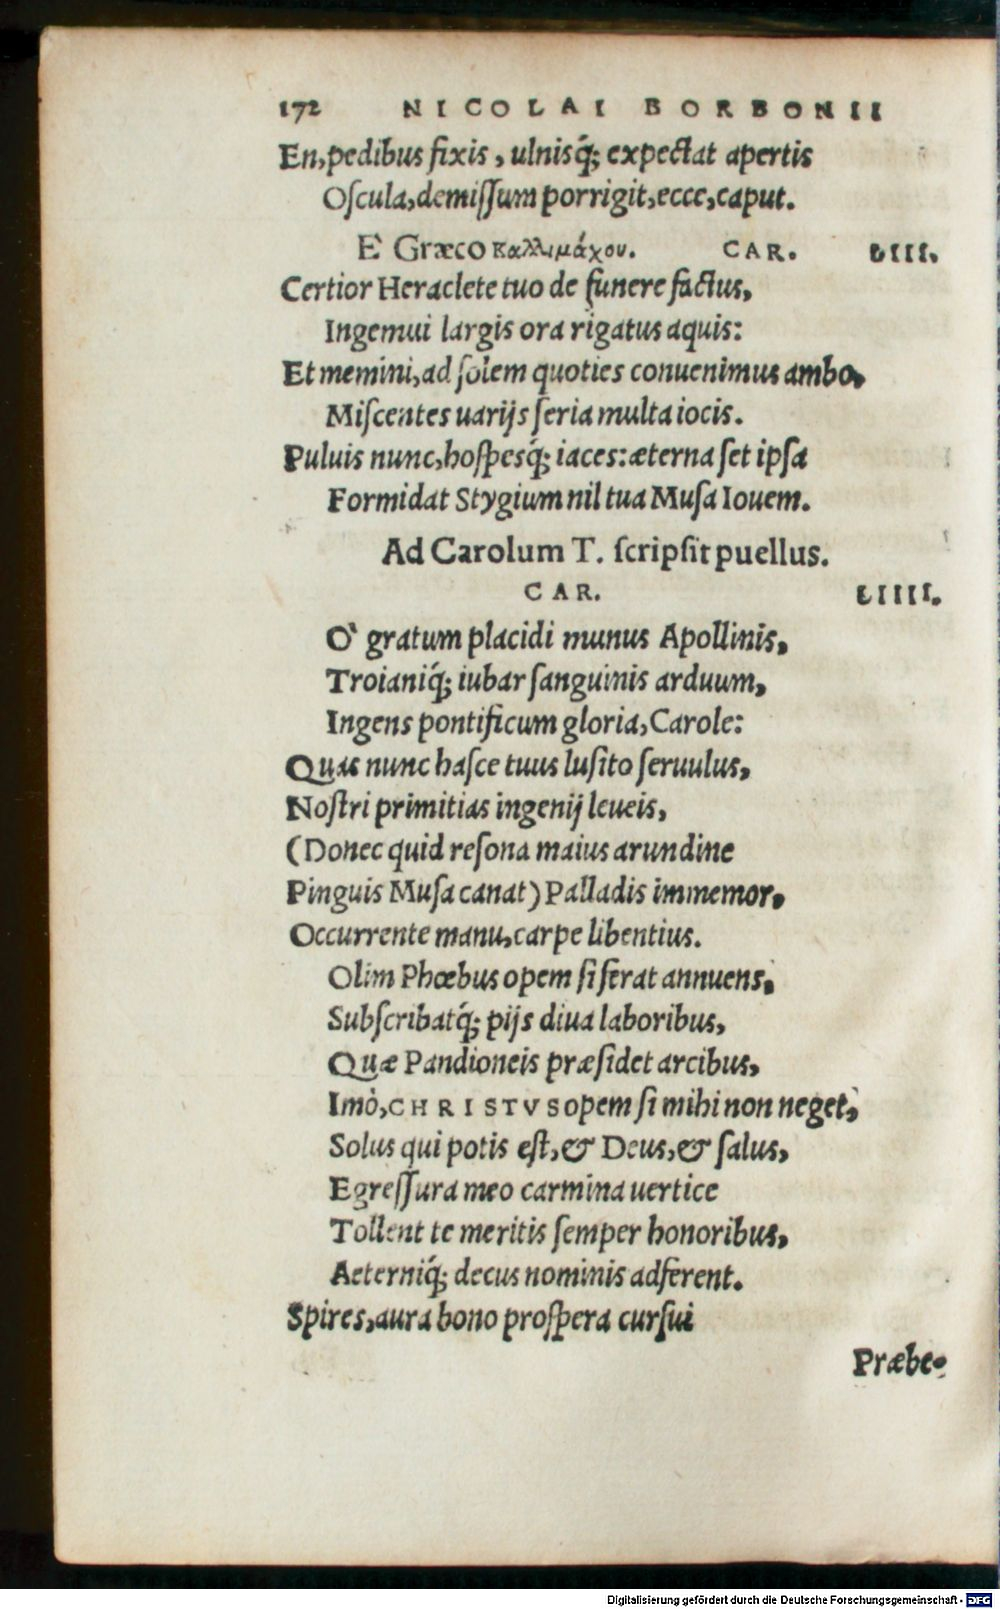 172 NICOLAI BORBONII
En, pedibus fixis, ulnisq́; expectat apertis
Oſcula, demiſſum porrigit, ecce, caput.
E` Græco καλλιμάχου. CAR. LIII.
Certior Heraclete tuo de funere factus,
Ingemui largis ora rigatus aquis:
Et memini, ad ſolem quoties conuenimus ambo,
Miſcentes uarijs ſeria multa iocis.
Puluis nunc, hoſpesq́; iaces: æterna ſet ipſa
Formidat Stygium nil tua Muſa Iouem.
Ad Carolum T. ſcripſit puellus.
CAR. LIIII.
O` gratum placidi munus Apollinis,
Troianiq́; iubar ſanguinis arduum,
Ingens pontificum gloria, Carole:
Quas nunc haſce tuus luſito ſeruulus,
Noſtri primitias ingenij leueis,
(Donec quid reſona maius arundine
Pinguis Muſa canat) Palladis immemor,
Occurrente manu, carpe libentius.
Olim Phœbus opem ſi ferat annuens,
Subſcribatq́; pijs diua laboribus,
Quæ Pandioneis præſidet arcibus,
Imò, CHRISTVS opem ſi mihi non neget,
Solus qui potis eſt, & Deus, & ſalus,
Egreſſura meo carmina uertice
Tollent te meritis ſemper honoribus,
Aeterniq́; decus nominis adferent.
Spires, aura bono proſpera curſui
Præbe-
Digitalisierung gefördert durch die Deutsche Forschungsgemeinschaft - DFG